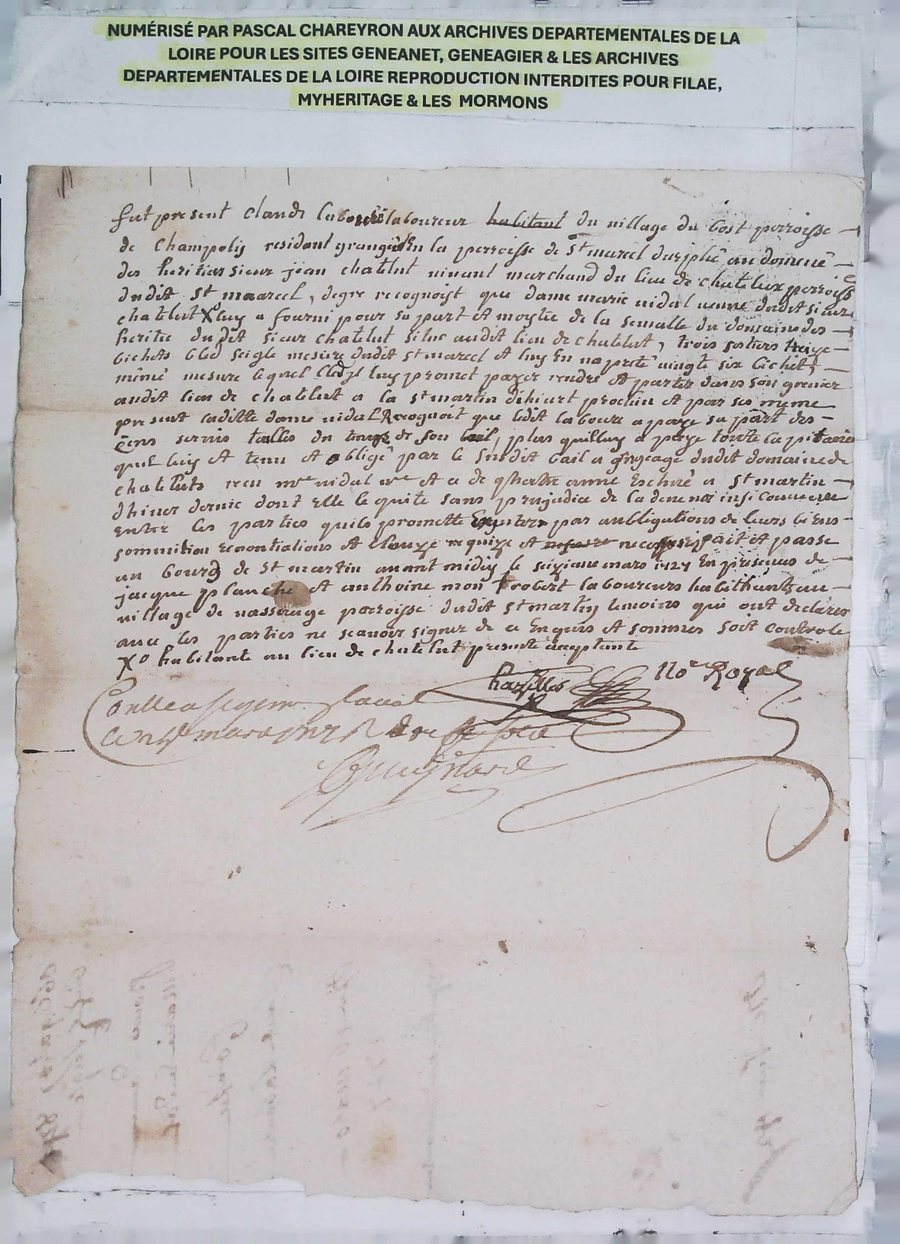 NUMÉRISÉ PAR PASCAL CHAREYRON AUX ARCHIVES DEPARTEMENTALES DE LA
LOIRE POUR LES SITES GENEANET, GENEAGIER & LES ARCHIVES
DEPARTEMENTALES DE LA LOIRE REPRODUCTION INTERDITES POUR FILAE,
MYHERITAGE & LES MORMONS
fut present claude laboureur habitant du village du bost perroisse
de champoly resident granger En la perroisse de St marcel durphé au domeine
des heritiers sieur jean chatelut vivant marchand du lieu de chatelux perroisse
dudit St maarcel, degre recognoist que dame marie vidal veuve dudit sieur
chatelut X luy a fourni pour sa part et moytie de la semalle du domaine des
heritie dudit sieur chatelut situe audit lieu de chatelut, trois setiers
bichets bled seigle mesure dudit st marcel et luy En na preté vingte six bichet
mime mesure lequel bled luy promet payer rendre et porter dans son grenier
audit lieu de chatelut a la st martin dhivert prochin et par ses myme
present laditte dame vidal Recognoit que ledit laboure a paye sa part des
cens servis talles du temps de son bail, plus quilluy a paye toute la
quil luy et tenu et obligé par le susdit bail a grngeage dudit domaine de
chateluts vidal et a de quattre anné Escheue a St martin
dhiver dernie dont elle le quite sans prejudice de
entre les parties quils promette par aubligations de leurs biens
sommition renontiations et clauze requize et fait et passe
au bourg de St martin avant midy le seizieme mars 1727 En presences de
jacque planche et anthoine mon robert laboureurs habithants au
village de nasserage paroisse dudit st martin temoins qui ont declarer
avec les parties ne scavoir signer de ce Enquis et sommes soit controle
X habitante au lieu de chatelut presente acceptante
No.e Royal
Con
mars 1727